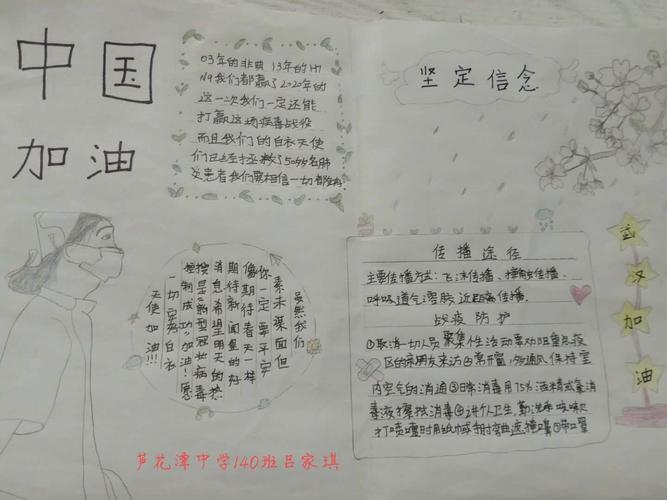 中国
加油
03年的非典 13年的H7
N9我们都赢了2020年的
这一次我们一定还能
打赢这场病毒战役
而且我们的白衣天使
们已经拯救了50多名肺
炎患者我们要相信一切都
坚定信念
虽然我们
素未谋面但
你一定要平安
像期待春天一样
期待新闻里的好
消息希望明天的热
搜是新型冠状病毒
控制成功加油愿
一切安好白衣
天使加油!!!
传播途径
主要传播方式:飞沫传播、接触传播、
呼吸道气溶胶近距离传播。
战疫防护
①取消一切人员聚集性活动要劝阻重点疫
区的亲朋友来访②常开窗多通风保持室
内空气的消通③日常消毒用75%酒精或含消
毒液擦拭消毒④讲个人卫生勤洗手咳嗽
打喷嚏时用纸巾
武
汉
加
油
芦花潭中学140班吕家琪